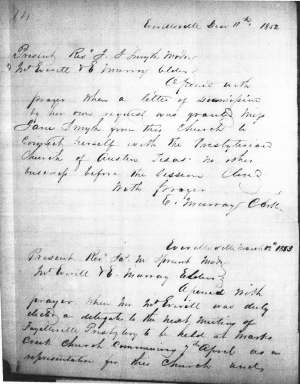 Dec 11th, 1882
Present Rev J. S. Smyth Modr,
Mr Everitt & E. Murray Elders
Opened with
prayer When a letter of dismission
by her own request was granted Miss
Jane Smyth from this Church to
connect herself with the Presbyterian
Church of Austin Texas no other
business before the session closed
With prayer
E. Murray C Sess
March 10th 1883
Present Rev Ja. M. Sprunt Mod,
Mr Everitt & E. Murray Elders,
Opened with
prayer when Mr Everitt was duly
elected a delegate to the next meeting of
Fayetteville Presbytery to be held at
Creek Church commencing April as a
representation from this Church and